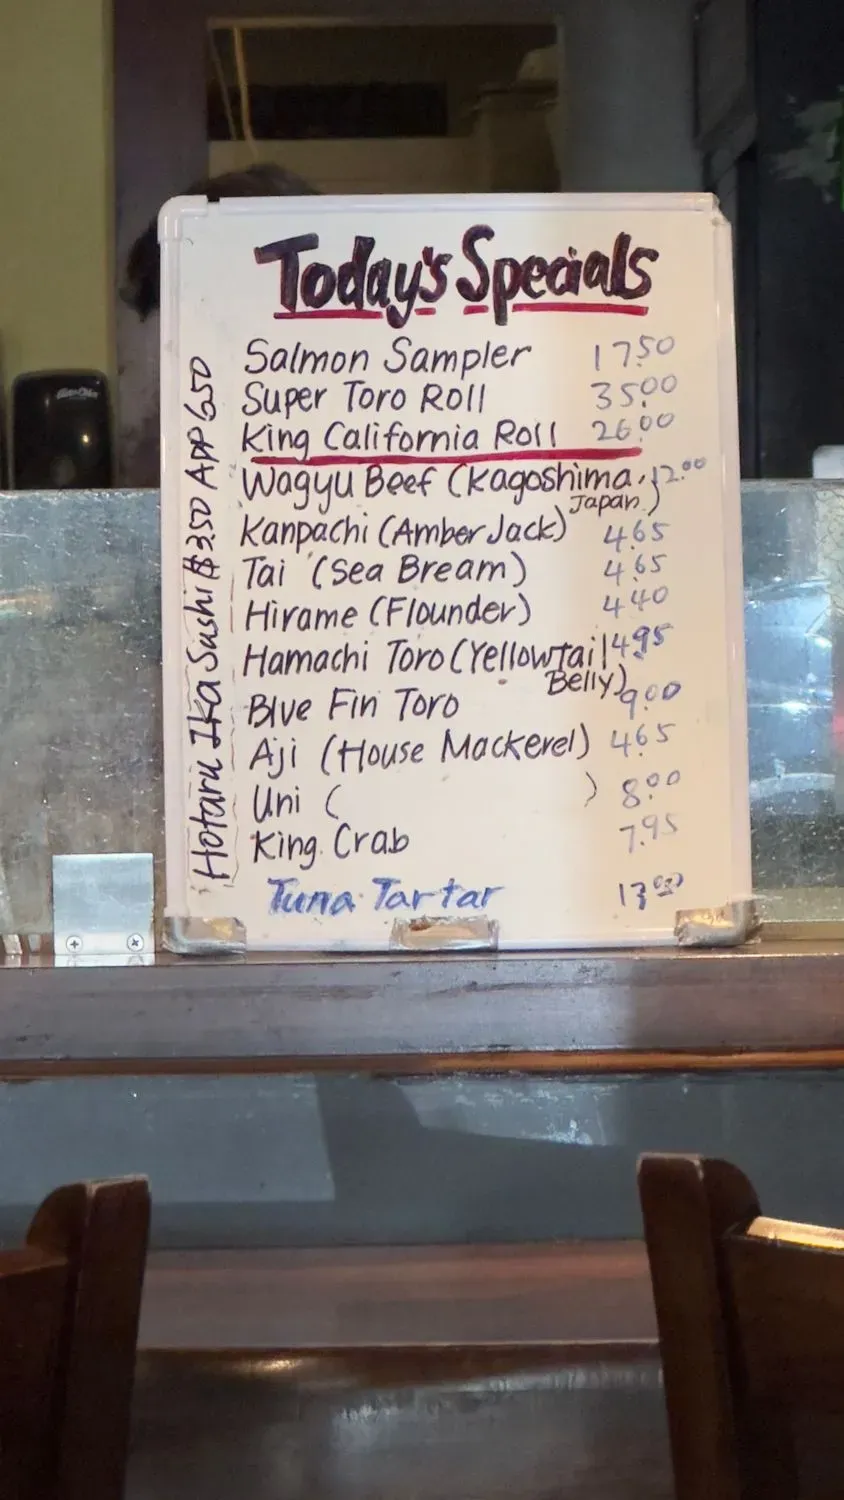 Today's Specials
Salmon Sampler 17.50
Super Toro Roll 35.00
King California Roll 26.00
Wagyu Beef (Kagoshima, 12.00
Japan)
Kanpachi (Amber Jack) 4.65
Tai (Sea Bream) 4.65
Hirame (Flounder) 4.40
Hamachi Toro (Yellowtail 4.95
Belly)
Blue Fin Toro 9.00
Aji (House Mackerel) 4.65
Uni ( ) 8.00
King Crab 7.95
Tuna Tartar
Hotaru Ika Sushi $3.50 APP 6.50